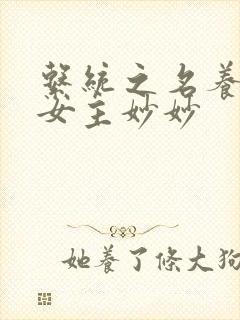 繫統之名養
女主妙妙
她養了條大狗